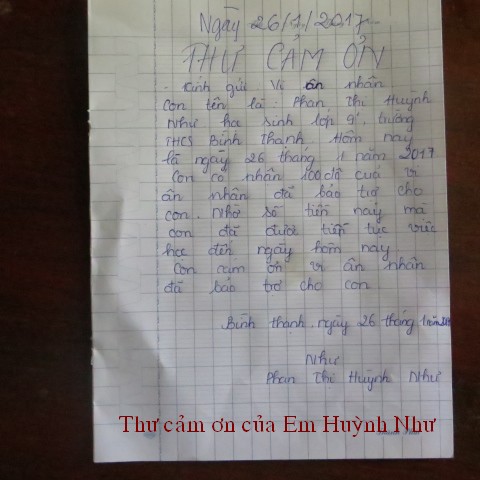 Ngày 26/1/2017
THƯ CẢM ƠN
Kính gửi Vị ân nhân
Con tên là: Phan Thị Huỳnh
Như học sinh lớp 9, trường
THCS Bình Thạnh Hôm nay
là ngày 26 tháng 1 năm 2017
Con có nhân 100đô cuả vị
ân nhân đã bảo trợ cho
con. Nhờ số tiền này mà
con đã được tiếp tục việc
học đến ngày hôm nay
Con cam ơn vị ân nhân
đã bảo trợ cho con
Bình thạnh, ngày 26 tháng 1 năm
Như
Phan Thị Huỳnh Như
Thư cảm ơn của Em Huỳnh Như